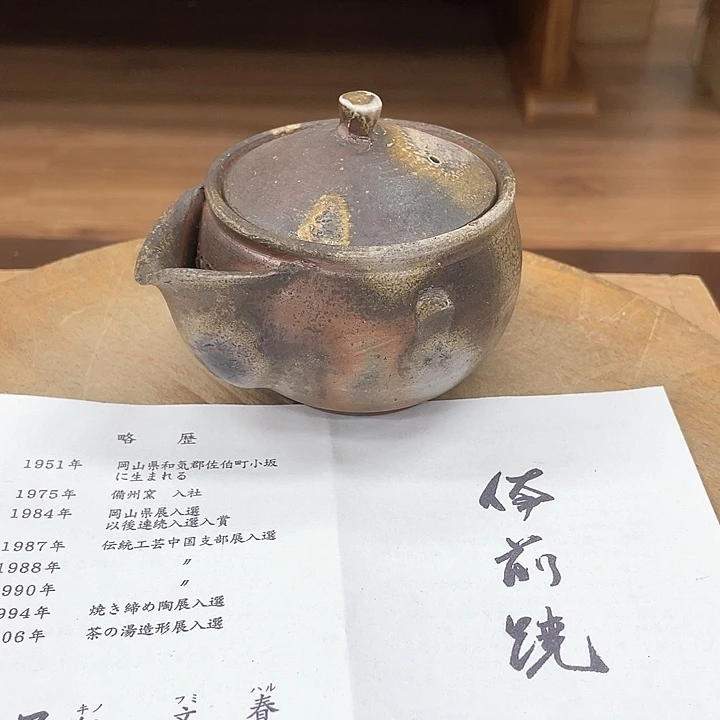 略 歴
1951年 岡山県和気郡佐伯町小坂
に生まれる
1975年 備州窯 入社
1984年 岡山県展入選
以後連続入選入賞
1987年 伝統工芸中国支部展入選
1988年 〃
990年 〃
994年 焼き締め陶展入選
06年 茶の湯造形展入選
キノ フミ ハル
文 春
備前焼